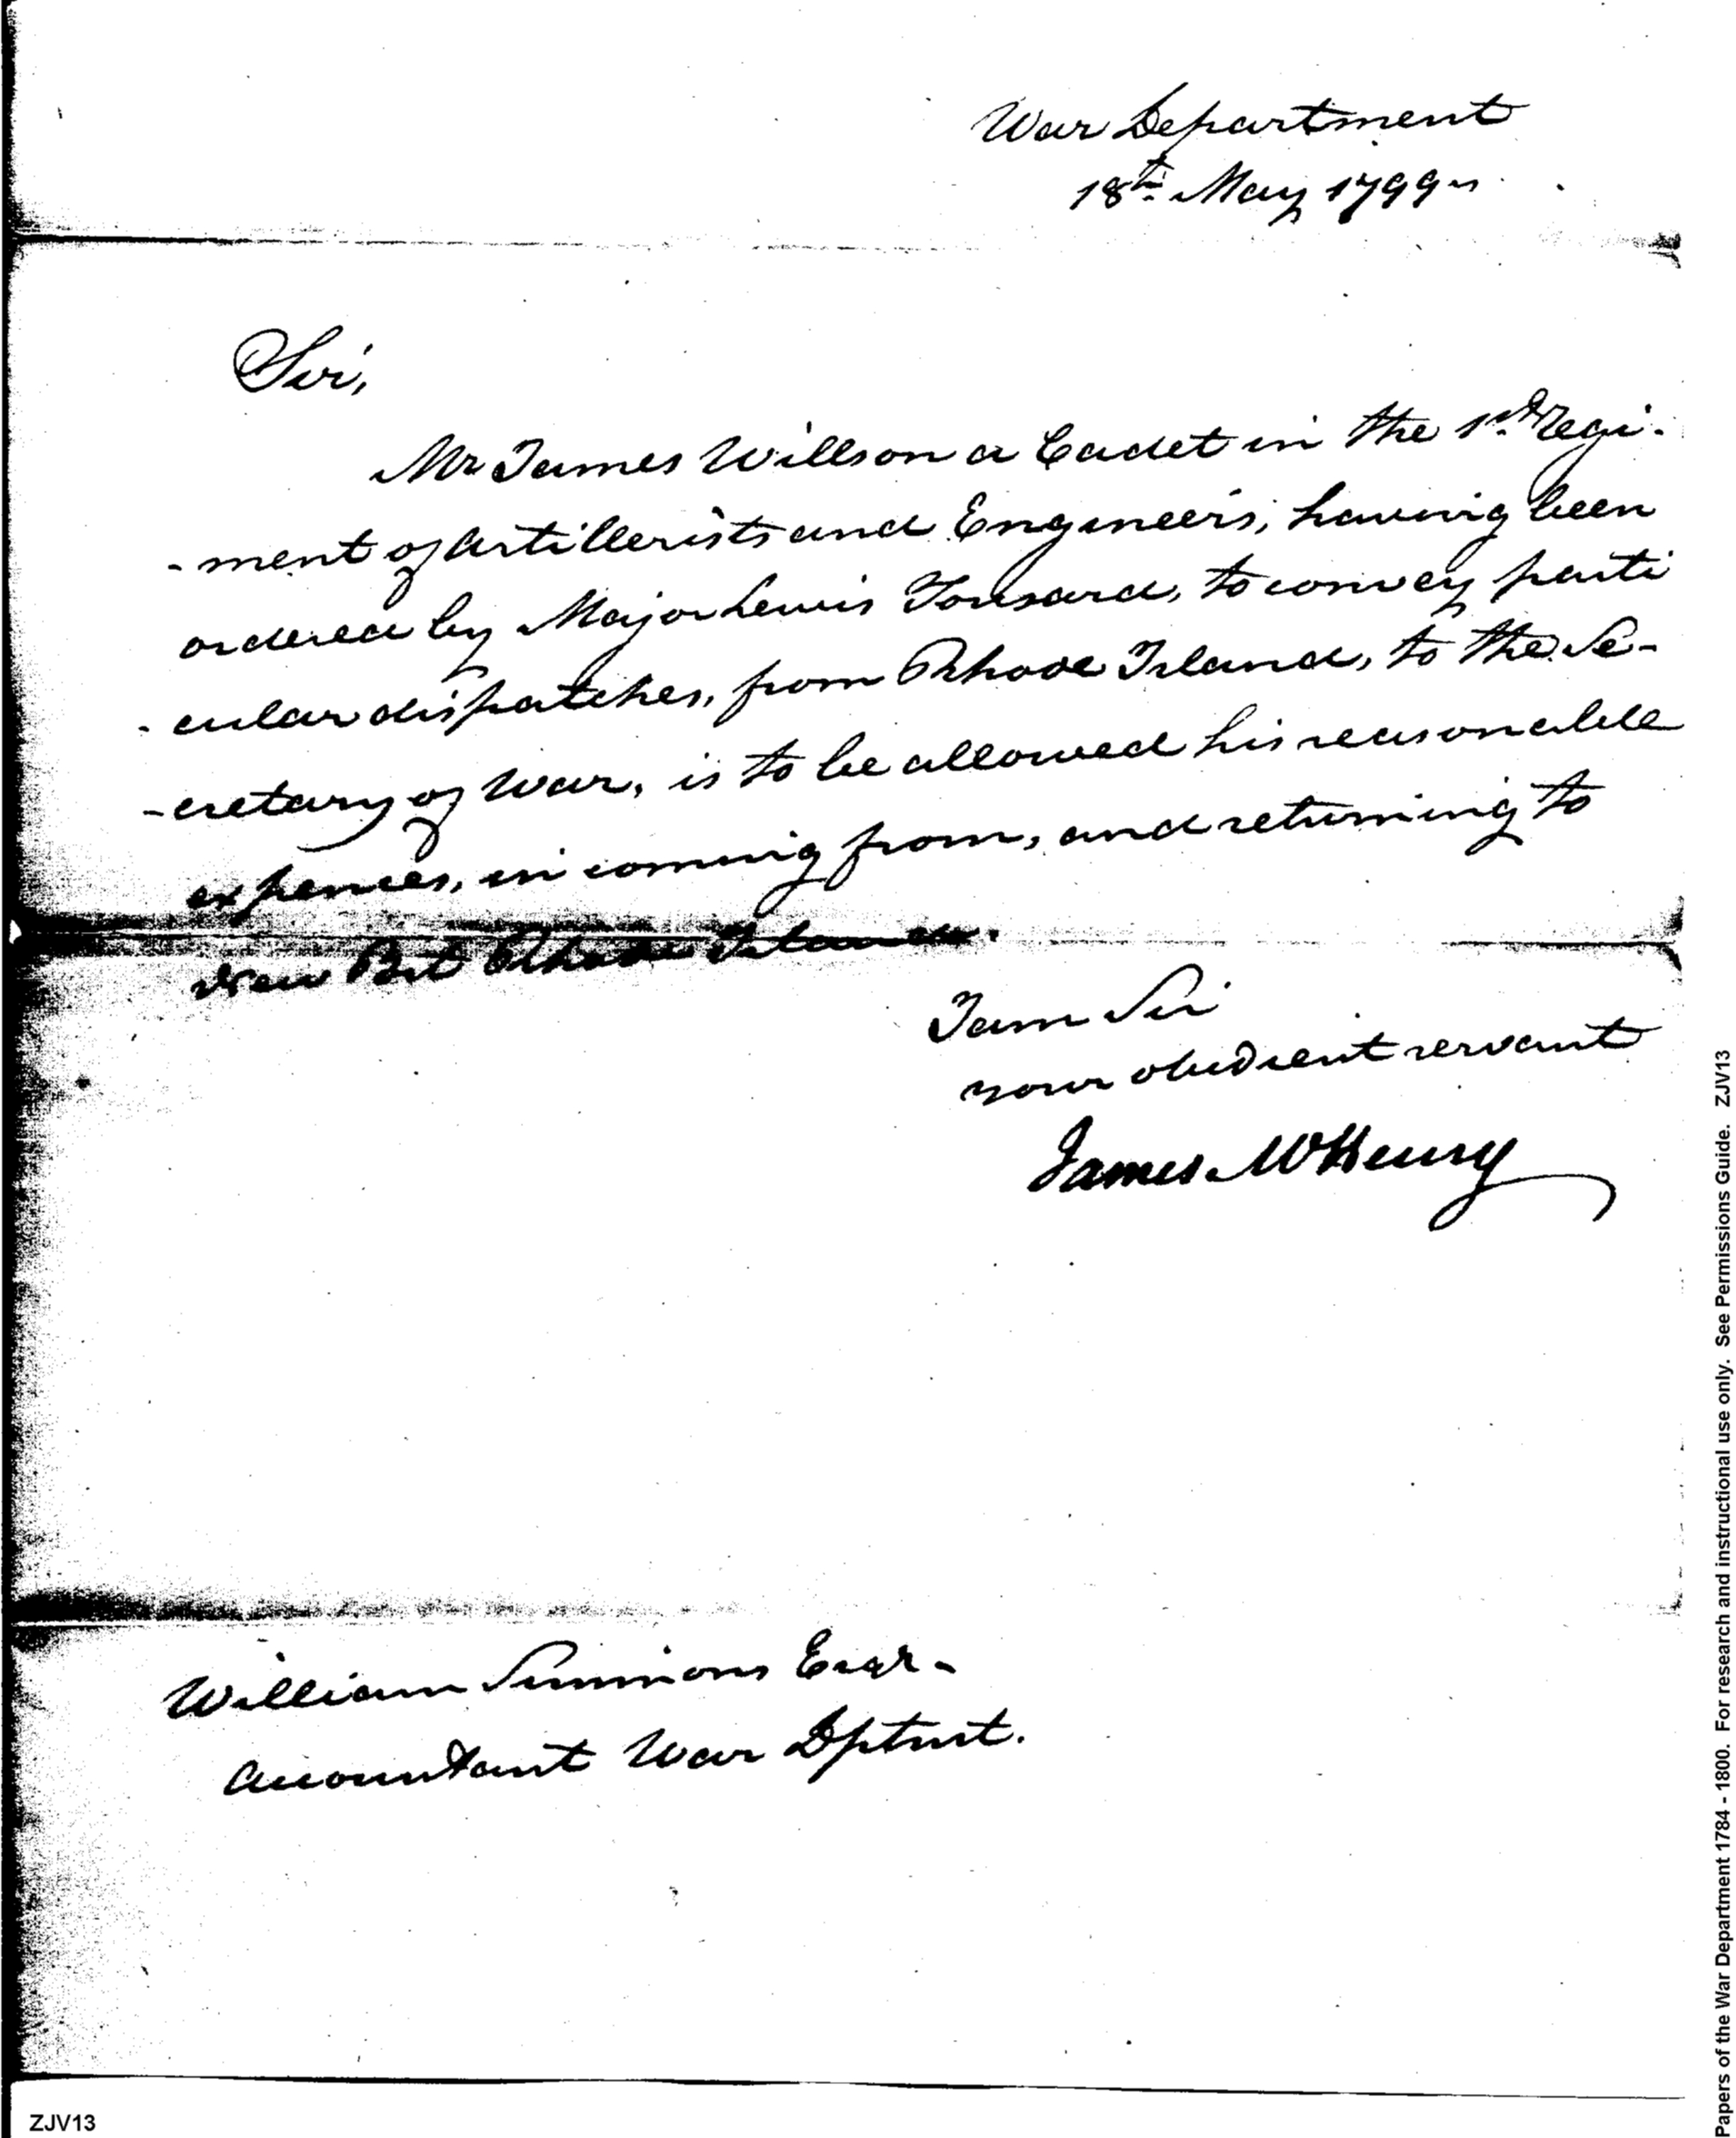 War Department
18th May 1799
Sir,
Mr James Willson a Cadet in the 1st Regi-
-ment of Artillerists and Engineers, having been
ordered by Major Lewis Tousard, to convey parti
-cular dispatches, from Rhode Island, to the Se-
-cretary of War, is to be allowed his reasonable
expences, in coming from, and returning to
New Rhode Island.
I am Sir
your obedient servant
James McHenry
William Simmons Esqr-
Accountant War Dptmt.
ZJV13
Papers of the War Department 1784 - 1800. For research and instructional use only. See Permissions Guide. ZJV13